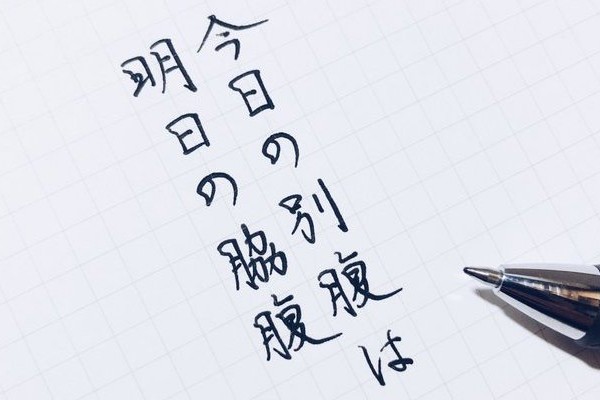 今日の別腹は
明日の脇腹